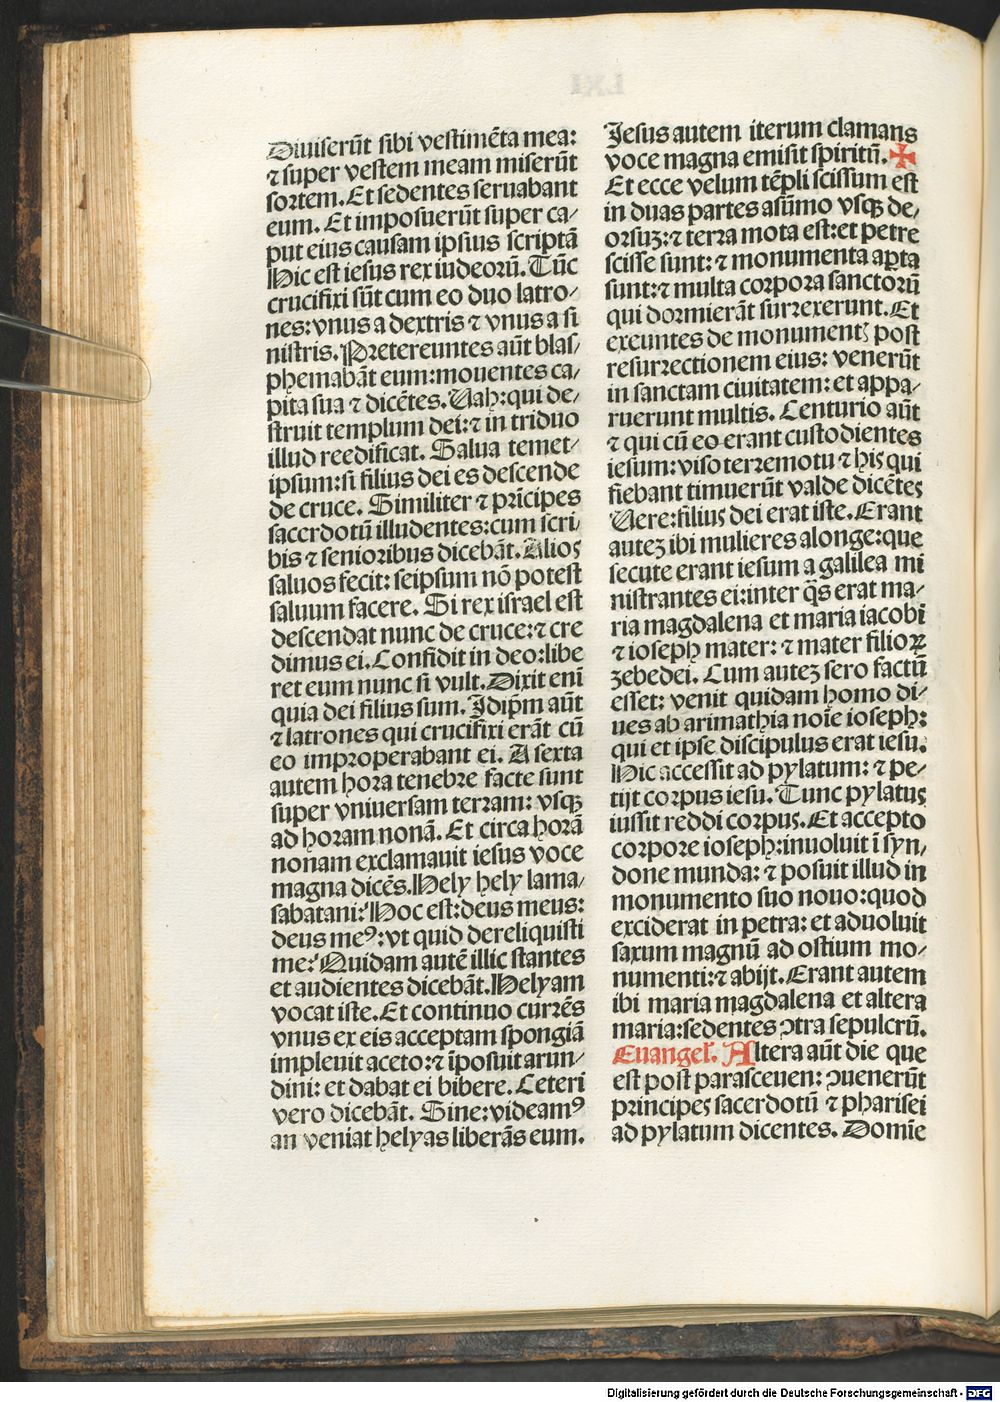 Diuiserūt sibi vestimēta mea:
⁊ super vestem meam miserūt
sortem. Et sedentes seruabant
eum. Et imposuerūt super ca/
put eius causam ipsius scriptā
Hic est iesus rex iudeorū. Tūc
crucifixi sūt cum eo duo latro/
nes: vnus a dextris ⁊ vnus a si
nistris. Pretereuntes aūt blas/
phemabāt eum: mouentes ca/
pita sua ⁊ dicētes. Uah: qui de/
struit templum dei: ⁊ in triduo
illud reedificat. Salua temet/
ipsum: si filius dei es descende
de cruce. Similiter ⁊ prīcipes
sacerdotū illudentes: cum scri/
bis ⁊ senioribus dicebāt. Alios
saluos fecit: seipsum nō potest
saluum facere. Si rex israel est
descendat nunc de cruce: ⁊ cre
dimus ei. Confidit in deo: libe
ret eum nunc si vult. Dixit enī
quia dei filius sum. Idip̄m aūt
⁊ latrones qui crucifixi erāt cū
eo improperabant ei. A sexta
autem hora tenebre facte sunt
super vniuersam terram: vsqꝫ
ad horam nonā. Et circa horā
nonam exclamauit iesus voce
magna dicēs. Hely hely lama/
sabatani: Hoc est: deus meus:
deus meꝰ: vt quid dereliquisti
me: Quidam autē illic stantes
et audientes dicebāt. Helyam
vocat iste. Et continuo currēs
vnus ex eis acceptam spongiā
impleuit aceto: ⁊ īposuit arun/
dini: et dabat ei bibere. Ceteri
vero dicebāt. Sine: videamꝰ
an veniat helyas liberās eum.
Jesus autem iterum clamans
voce magna emisit spiritū. ✠
Et ecce velum tēpli scissum est
in duas partes a sūmo vsqꝫ de/
orsuꝫ: ⁊ terra mota est: et petre
scisse sunt: ⁊ monumenta aꝑta
sunt: ⁊ multa corpora sanctorū
qui dormierāt surrexerunt. Et
exeuntes de monumentꝭ post
resurrectionem eius: venerūt
in sanctam ciuitatem: et appa/
ruerunt multis. Centurio aūt
⁊ qui cū eo erant custodientes
iesum: viso terremotu ⁊ his qui
fiebant timuerūt valde dicētes
Uere: filius dei erat iste. Erant
auteꝫ ibi mulieres a longe: que
secute erant iesum a galilea mi
nistrantes ei: inter q̄s erat ma/
ria magdalena et maria iacobi
⁊ ioseph mater: ⁊ mater filioꝝ
zebedei. Cum auteꝫ sero factū
esset: venit quidam homo di/
ues ab arimathia noīe ioseph:
qui et ipse discipulus erat iesu.
Hic accessit ad pylatum: ⁊ pe/
tijt corpus iesu. Tunc pylatus
iussit reddi corpus. Et accepto
corpore ioseph: inuoluit ī syn/
done munda: ⁊ posuit illud in
monumento suo nouo: quod
exciderat in petra: et aduoluit
saxum magnū ad ostium mo/
numenti: ⁊ abijt. Erant autem
ibi maria magdalena et altera
maria: sedentes ↄtra sepulcrū.
Euangeł. Altera aūt die que
est post parasceuen: ↄuenerūt
principes sacerdotū ⁊ pharisei
ad pylatum dicentes. Domīe
Digitalisierung gefördert durch die Deutsche Forschungsgemeinschaft - DFG